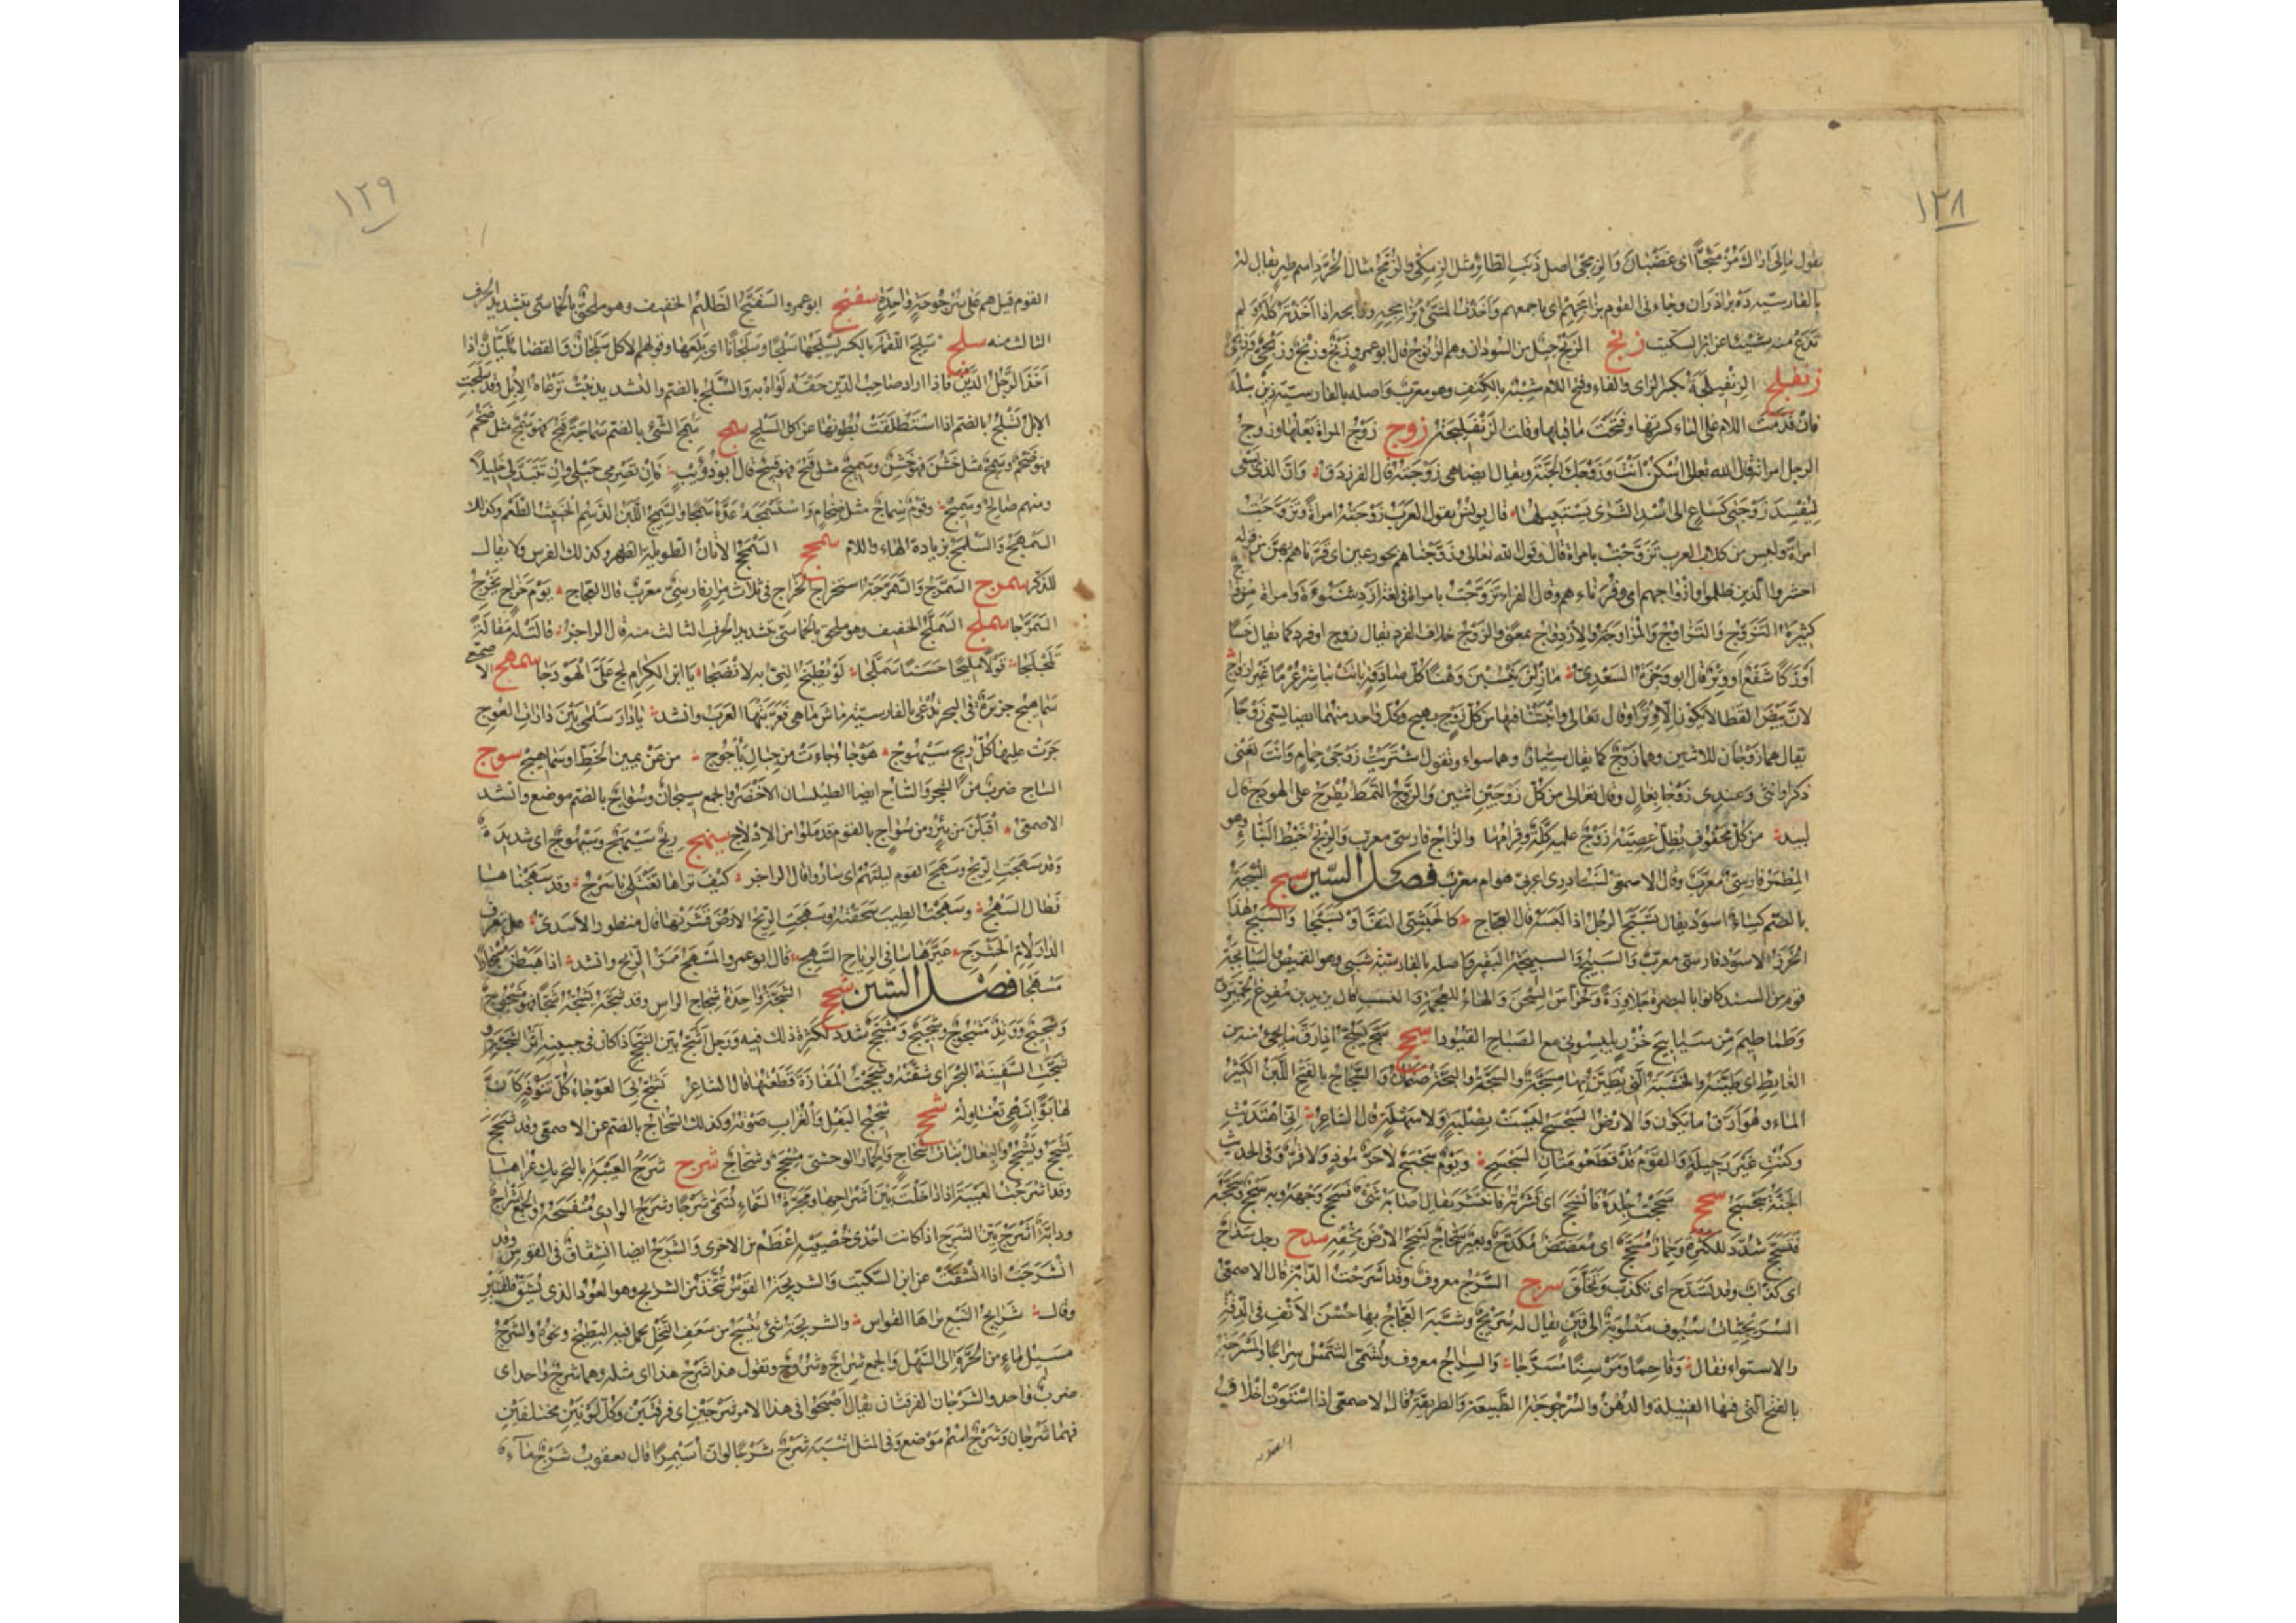 ١٢٨
يقول مالى اراك مزمئجا اى غضبان والزمجى اصل ذنب الطائر مثل الزمكى والزمج مثال الخرد اسم طير يقال له
بالفارسية ده براذران وجاءنى القوم بزامجهم اى باجمعهم واخذت الشئ بزامجه اذا اخذته كله ولم
تدع منه شيئا عن ابن السكيت زنج الزنج جيل من السودان وهم الزنوج قال ابو عمرو زنج وزنج وزنجى وزنجى
زنفلج الزنفيلجة بكسر الزاى والفاء وفتح اللام شبيه بالكنف وهو معرب واصله بالفارسية زين بيله
فان قدمت اللام على الياء كسرتها وفتحت ما قبلها وقلت الزنفليجة زوج زوج المراة بعلها وزوج
الرجل امراته قال الله تعالى اسكن انت وزوجك الجنة ويقال ايضا هى زوجته قال الفرزدق وان الذى يسعى
ليفسد زوجتى كساع الى اسد الشرى يستبيلها قال يونس يقول العرب زوجته امراة وتزوجت
امراة وليس من كلام العرب تزوجت بامراة قال وقول الله تعالى وزوجناهم بحور عين اى قرناهم بهن من قوله
احشروا الذين ظلموا وازواجهم اى وقرناءهم وقال الفراء تزوجت بامراة لغة فى ازد شنوءة وامراة مزواج
كثيرة التزوج والتزاوج والمزاوجة والازدواج بمعنى والزوج خلاف الفرد يقال زوج او فرد كما يقال خسا
او زكا شفع او وتر قال ابو وجزة السعدى ما زلن ينسبن وهنا كل صادقة باتت تباشر عرما غير ازواج
لان بيض القطا لا يكون الا وترا وقال تعالى وانبتنا فيها من كل زوج بهيج وكل واحد منهما ايضا يسمى زوجا
يقال هما زوجان للاثنين وهما زوج كما يقال سيان وهما سواء وتقول اشتريت زوجى حمام وانت تعنى
ذكرا وانثى وعندى زوجا نعال وقال تعالى من كل زوجين اثنين والزوج النمط يطرح على الهودج قال
لبيد من كل محفوف يظل عصيه زوج عليه كلة وقرامها والزاج فارسى معرب والزيج خيط البناء وهو
المطمر فارسى معرب وقال الاصمعى لست ادرى اعربى هو ام معرب فصل السين سبج السبجة
بالضم كساء اسود يقال تسبج الرجل اذا لبسه قال العجاج كالحبشى التف او تسبجا والسبج هذا
الخرز الاسود فارسى معرب والسبيج والسبيجة البقير واصله بالفارسية شبى وهو القميص والسبابجة
قوم من السند كانوا بالبصرة جلاوزة وحراس السجن والهاء للعجمة والنسب قال يزيد بن مفرغ الحميرى
وطماطيم من سبابيج خزر يلبسونى مع الصباح القيودا سجج سج يسج اذا رق ما يجئ منه من
الغائط اى طينه والخشبة التى يطين بها مسجة والسجة والبجة صنمان والسجاج بالفتح اللبن الكثير
الماء وهو ارق ما يكون والارض السجسج ليست بصلبة ولا سهلة قال الشاعر انى اهتديت
وكنت غير رجيلة والقوم قد قطعوا متان السجسج ويوم سجسج لا حر موذ ولا قر وفى الحديث
الجنة سجسج سحج سحجت جلده فانسحج اى قشرته فانقشر يقال اصابه شئ فسحج وجهه وبه سحج وسحجه
فتسحج شدد للكثرة وحمار مسحج اى معضض مكدح وبعير سحاج يسحج الارض بخفه سدج رجل سداج
اى كذاب وقد تسدج اى تكذب وتخلق سرج السرج معروف وقد اسرجت الدابة قال الاصمعى
السريجيات سيوف منسوبة الى قين يقال له سريج وشبه العجاج بها حسن الانف فى الدقة
والاستواء فقال وفاحما ومرسنا مسرجا والسراج معروف وتسمى الشمس سراجا والمسرجة
بالفتح التى فيها الفتيلة والدهن والسرجوجة الطبيعة والطريقة قال الاصمعى اذا استوت اخلاق
القوم
١٢٩
القوم قيل هم على سرجوجة واحدة سفنج ابو عمرو السفنج الظليم الخفيف وهو ملحق بالخماسى بتشديد الحرف
الثالث منه سلج سلج اللقمة بالكسر يسلجها سلجا وسلجانا اى بلعها وقولهم الاكل سلجان والقضاء ليان اذا
اخذ الرجل الدين فاذا اراد صاحب الدين حقه لواه به والسلج بالضم والتشديد نبت ترعاه الابل وقد سلجت
الابل تسلج بالضم اذا استطلقت بطونها عن اكل السلج سمج سمج الشئ بالضم سماجة قبح فهو سمج مثل ضخم
فهو ضخم وسمج مثل خشن فهو خشن وسميج مثل قبح فهو قبيح قال ابو ذؤيب فان تصرمى حبلى وان تتبدلى خليلا
ومنهم صالح وسميج وقوم سماج مثل ضخام واستسمجه عده سمجا والسمج اللبن الدسم الخبيث الطعم وكذلك
السمهج والسملج بزيادة الهاء واللام سمحج السمحج الاتان الطويلة الظهر وكذلك الفرس ولا يقال
للذكر سمرج السمرج والسمرجة استخراج الخراج فى ثلاث مرات فارسى معرب قال العجاج يوم خراج يخرج
السمرجا سملج السملج الخفيف وهو ملحق بالخماسى بتشديد الحرف الثالث منه قال الراجز قالت له مقالة
تلجلجا قولا مليحا حسنا سملجا لو يطبخ النئ به لانضجا يا ابن الكرام لج على الهودجا سمهج الاصمعى
سماهيج جزيرة فى البحر تدعى بالفارسية ماش ماهى فعربتها العرب وانشد يا دار سلمى بين دارات العوج
جرت عليها كل ريح سيهوج هوجاء جاءت من جبال ياجوج من عن يمين الخط او سماهيج سوج
الساج ضرب من الشجر والساج ايضا الطيلسان الاخضر والجمع سيجان وسواج بالضم موضع وانشد
الاصمعى اقبلن من نير ومن سواج بالقوم قد ملوا من الادلاج سهج ريح سيهج وسيهوج اى شديدة
وقد سهجت الريح وسهج القوم ليلتهم اى ساروا قال الراجز كيف تراها تغتلى يا شرج وقد سهجناها
فطال السهج وسهجت الطيب سحقته وسهجت الريح الارض قشرتها قال منظور الاسدى هل تعرف
الدار لام الحشرج غيرها سافى الرياح السهج قال ابو عمرو المسهج ممر الريح وانشد اذا هبطن مستحارا
مسهجا فصل الشين شجج الشجة واحدة شجاج الراس وقد شجه يشجه شجا فهو مشجوج
وشجيج ووتد مشجوج وشجيج ومشجج شدد لكثرة ذلك فيه ورجل اشج بين الشجج اذا كان فى جبينه اثر الشجة و
شجت السفينة البحر اى شقته وشججت المفازة قطعتها قال الشاعر تشج بى العوجاء كل تنوفة كان
لها بوا بنهى تغاوله شحج شحيج البغل والغراب صوته وكذلك الشحاج بالضم عن الاصمعى وقد شحج
يشحج ويشحج والبغال بنات شحاج والحمار الوحشى مشحج وشحاج شرج شرج العيبة بالتحريك عراها
وقد اشرجت العيبة اذا داخلت بين اشراجها ومجرة السماء تسمى شرجا وشرج الوادى منفسحه والجمع اشراج
ودابة اشرج بين الشرج اذا كانت احدى خصييه اعظم من الاخرى والشرج ايضا انشقاق فى القوس وقد
انشرجت اذا انشقت عن ابن السكيت والشريجة القوس تتخذ من الشريج وهو العود الذى يشق فلقين
وقال شرايج النبع براها القواس والشريجة شئ ينسج من سعف النخل يحمل فيه البطيخ ونحوه والشرج
مسيل الماء من الحرة الى السهل والجمع شراج وشروج وتقول هذا شرج هذا اى مثله وهما شرج واحد اى
ضرب واحد والشرجان الفرقتان يقال اصبحوا فى هذا الامر شرجين اى فرقتين وكل لونين مختلفين
فهما شرجان وشرج اسم موضع وفى المثل اشبه شرج شرجا لو ان اسيمرا قال يعقوب شرج ماء